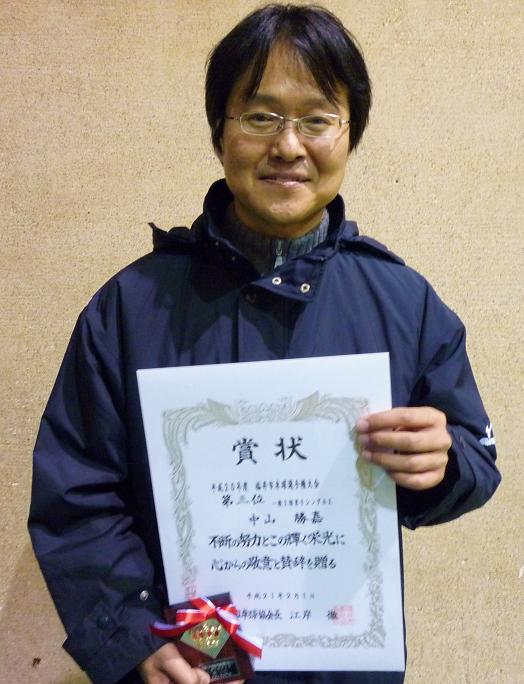 賞状
平成20年度 福井市卓球選手権大会
第三位 一般2部男子シングルス
中山 勝嘉
不断の努力とこの輝く栄光に
心からの敬意と賛辞を贈る
平成21年2月1日
卓球協会長 江岸 徹